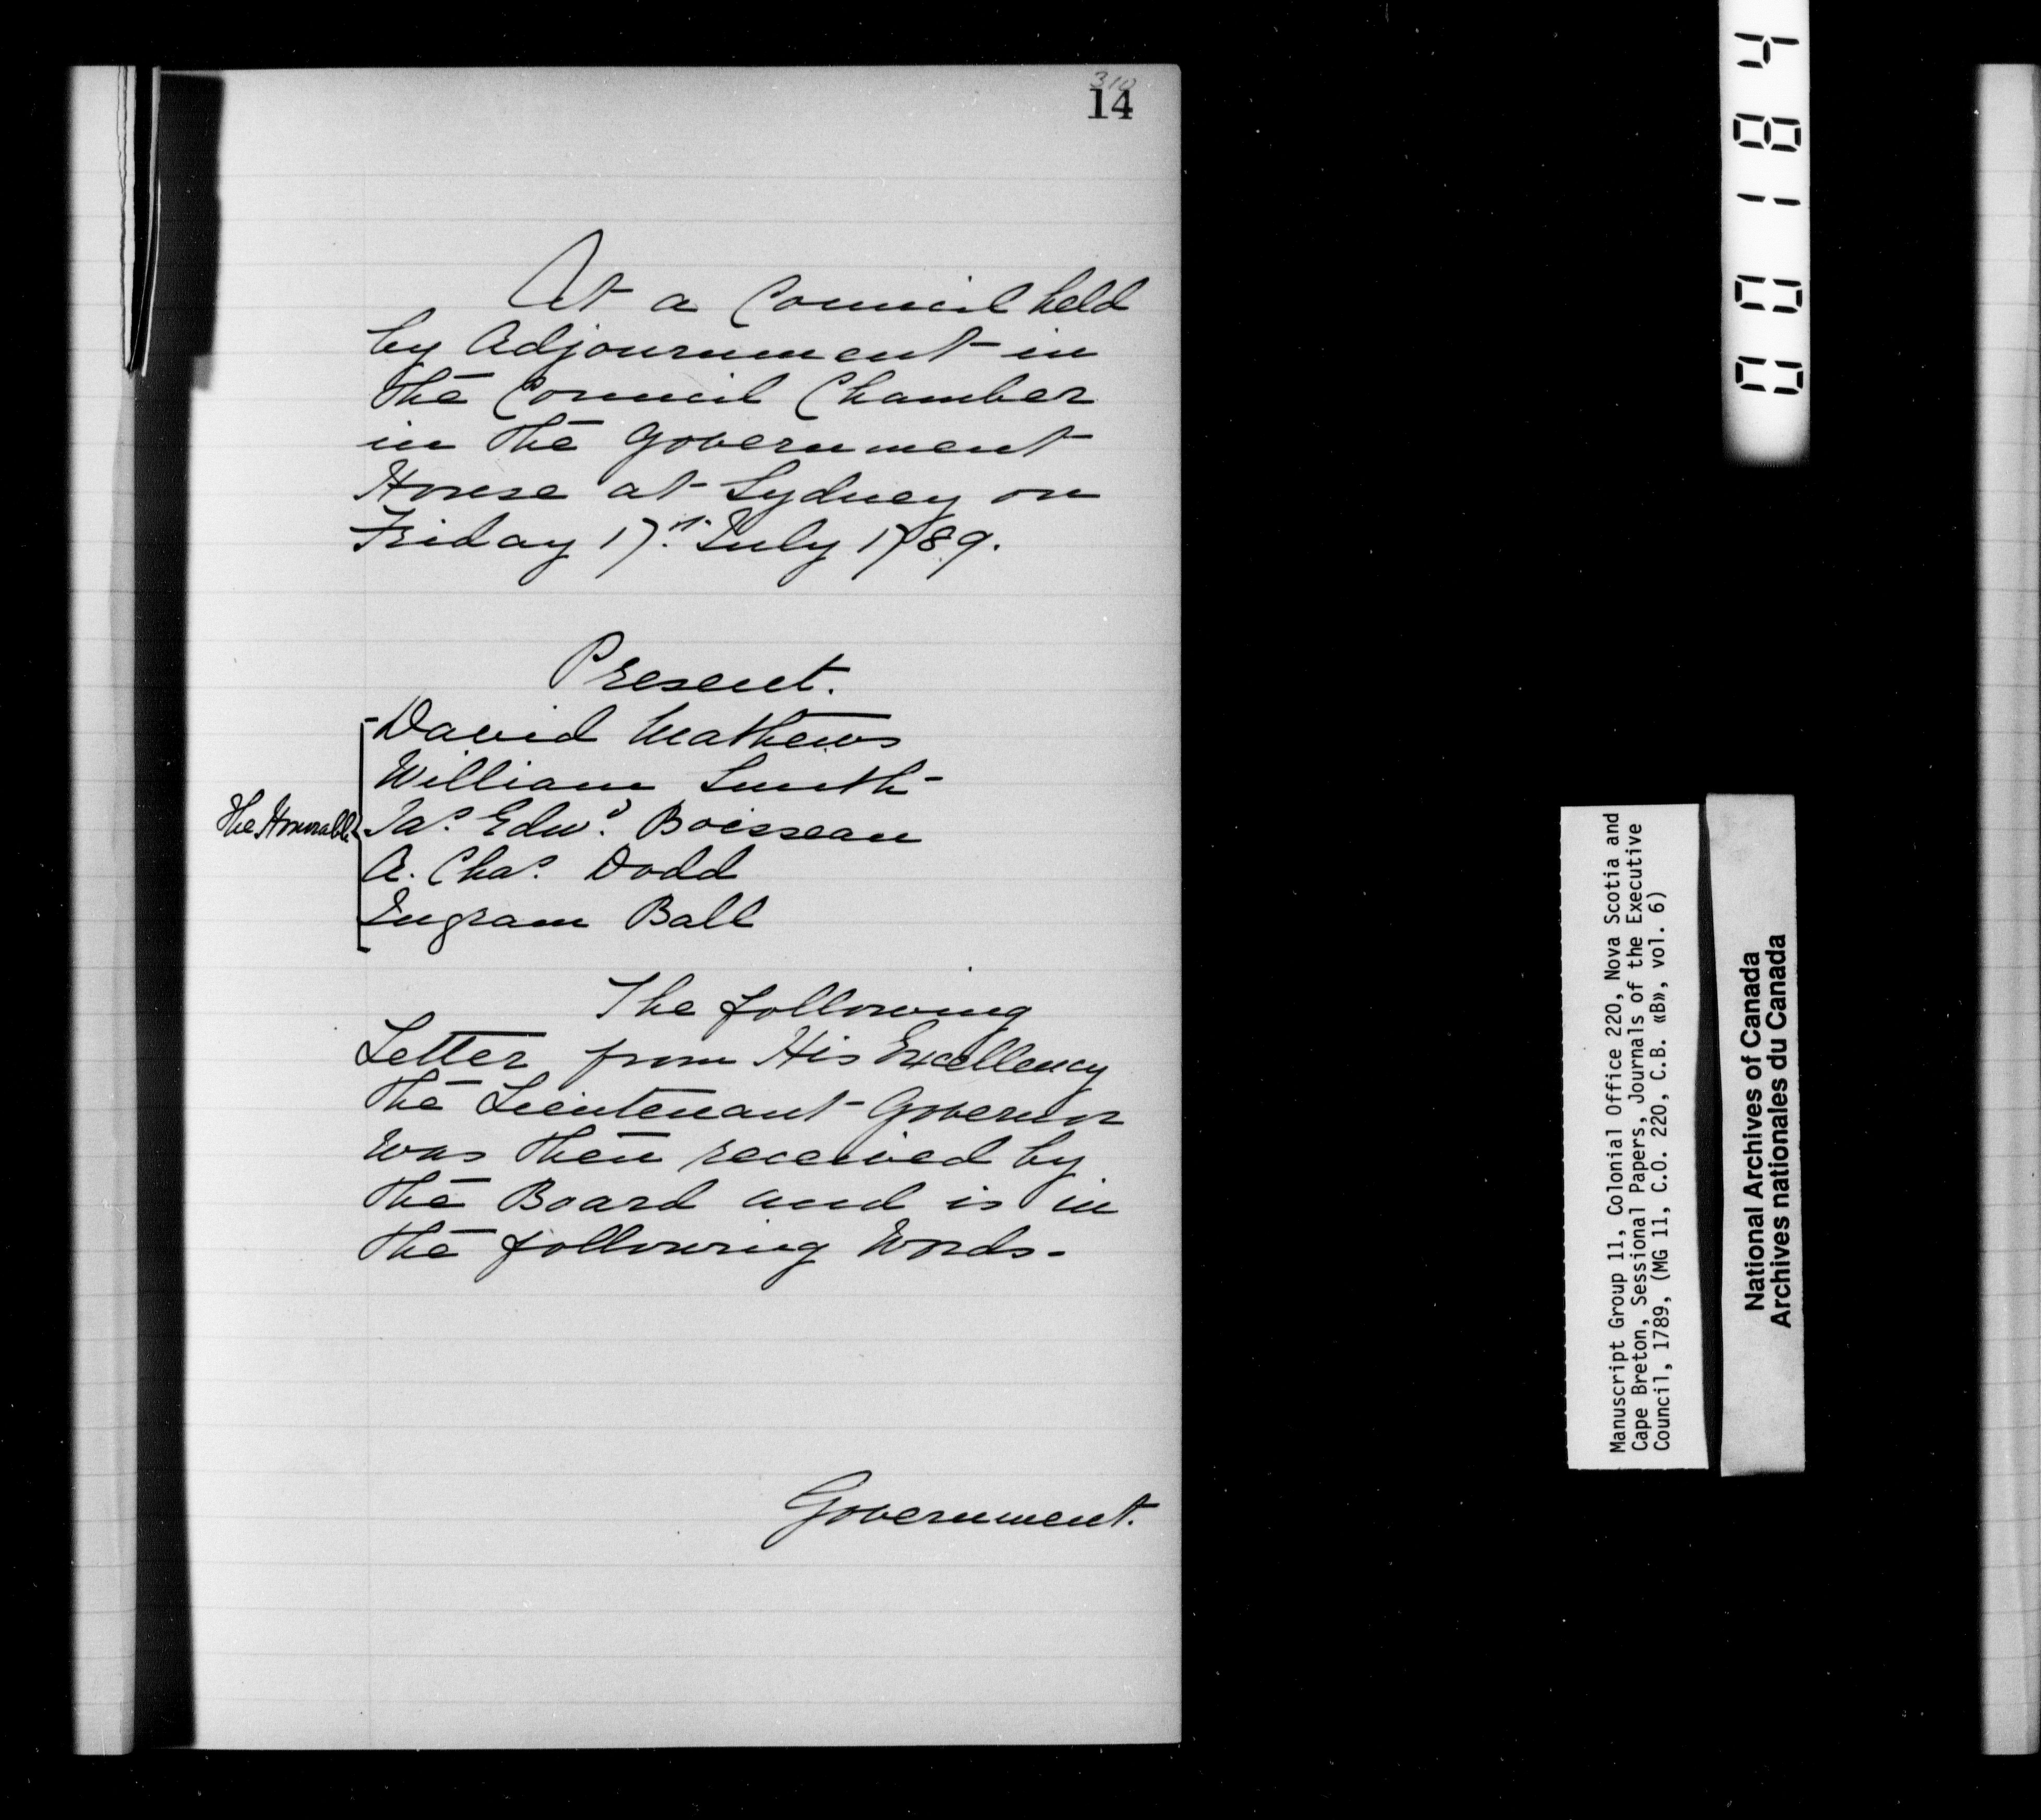 310
14
At a Council held
by Adjournment in
the Council Chamber
in the Government
House at Sydney on
Friday 17.th July 1789.
Present.
The Honorable
David Mathews
William Smith
Jas. Edwd. Boisseau
A. Chas. Dodd
Ingram Ball
The following
Letter from His Excellency
the Lieutenant Governor
was then received by
the Board and is in
the following Words.
Government.
00184
Manuscript Group 11, Colonial Office 220, Nova Scotia and
Cape Breton, Sessional Papers, Journals of the Executive
Council, 1789, (MG 11, C.O. 220, C.B. «B», vol. 6)
National Archives of Canada
Archives nationales du Canada